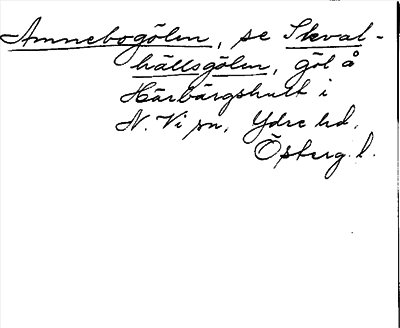 Amnebogölen, se Skval-
hällsgölen, göl å
Härbärgshult i
N. Vi sn, Ydre hd,
Österg. l.